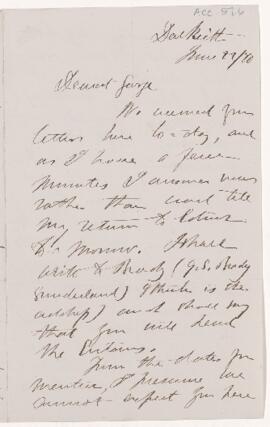 ACC. 556
Dalkeith
June 22/70
Dearest George
We received your
letters here to-day, and
as I have a few
minutes I answer
rather than wait till
my return to
to-morrow. I shall
write to Ready (G.S. Ready
Sunderland) I think is the
and shall say
that you will send
the
From the dates you
mention, I presume we
cannot expect you here